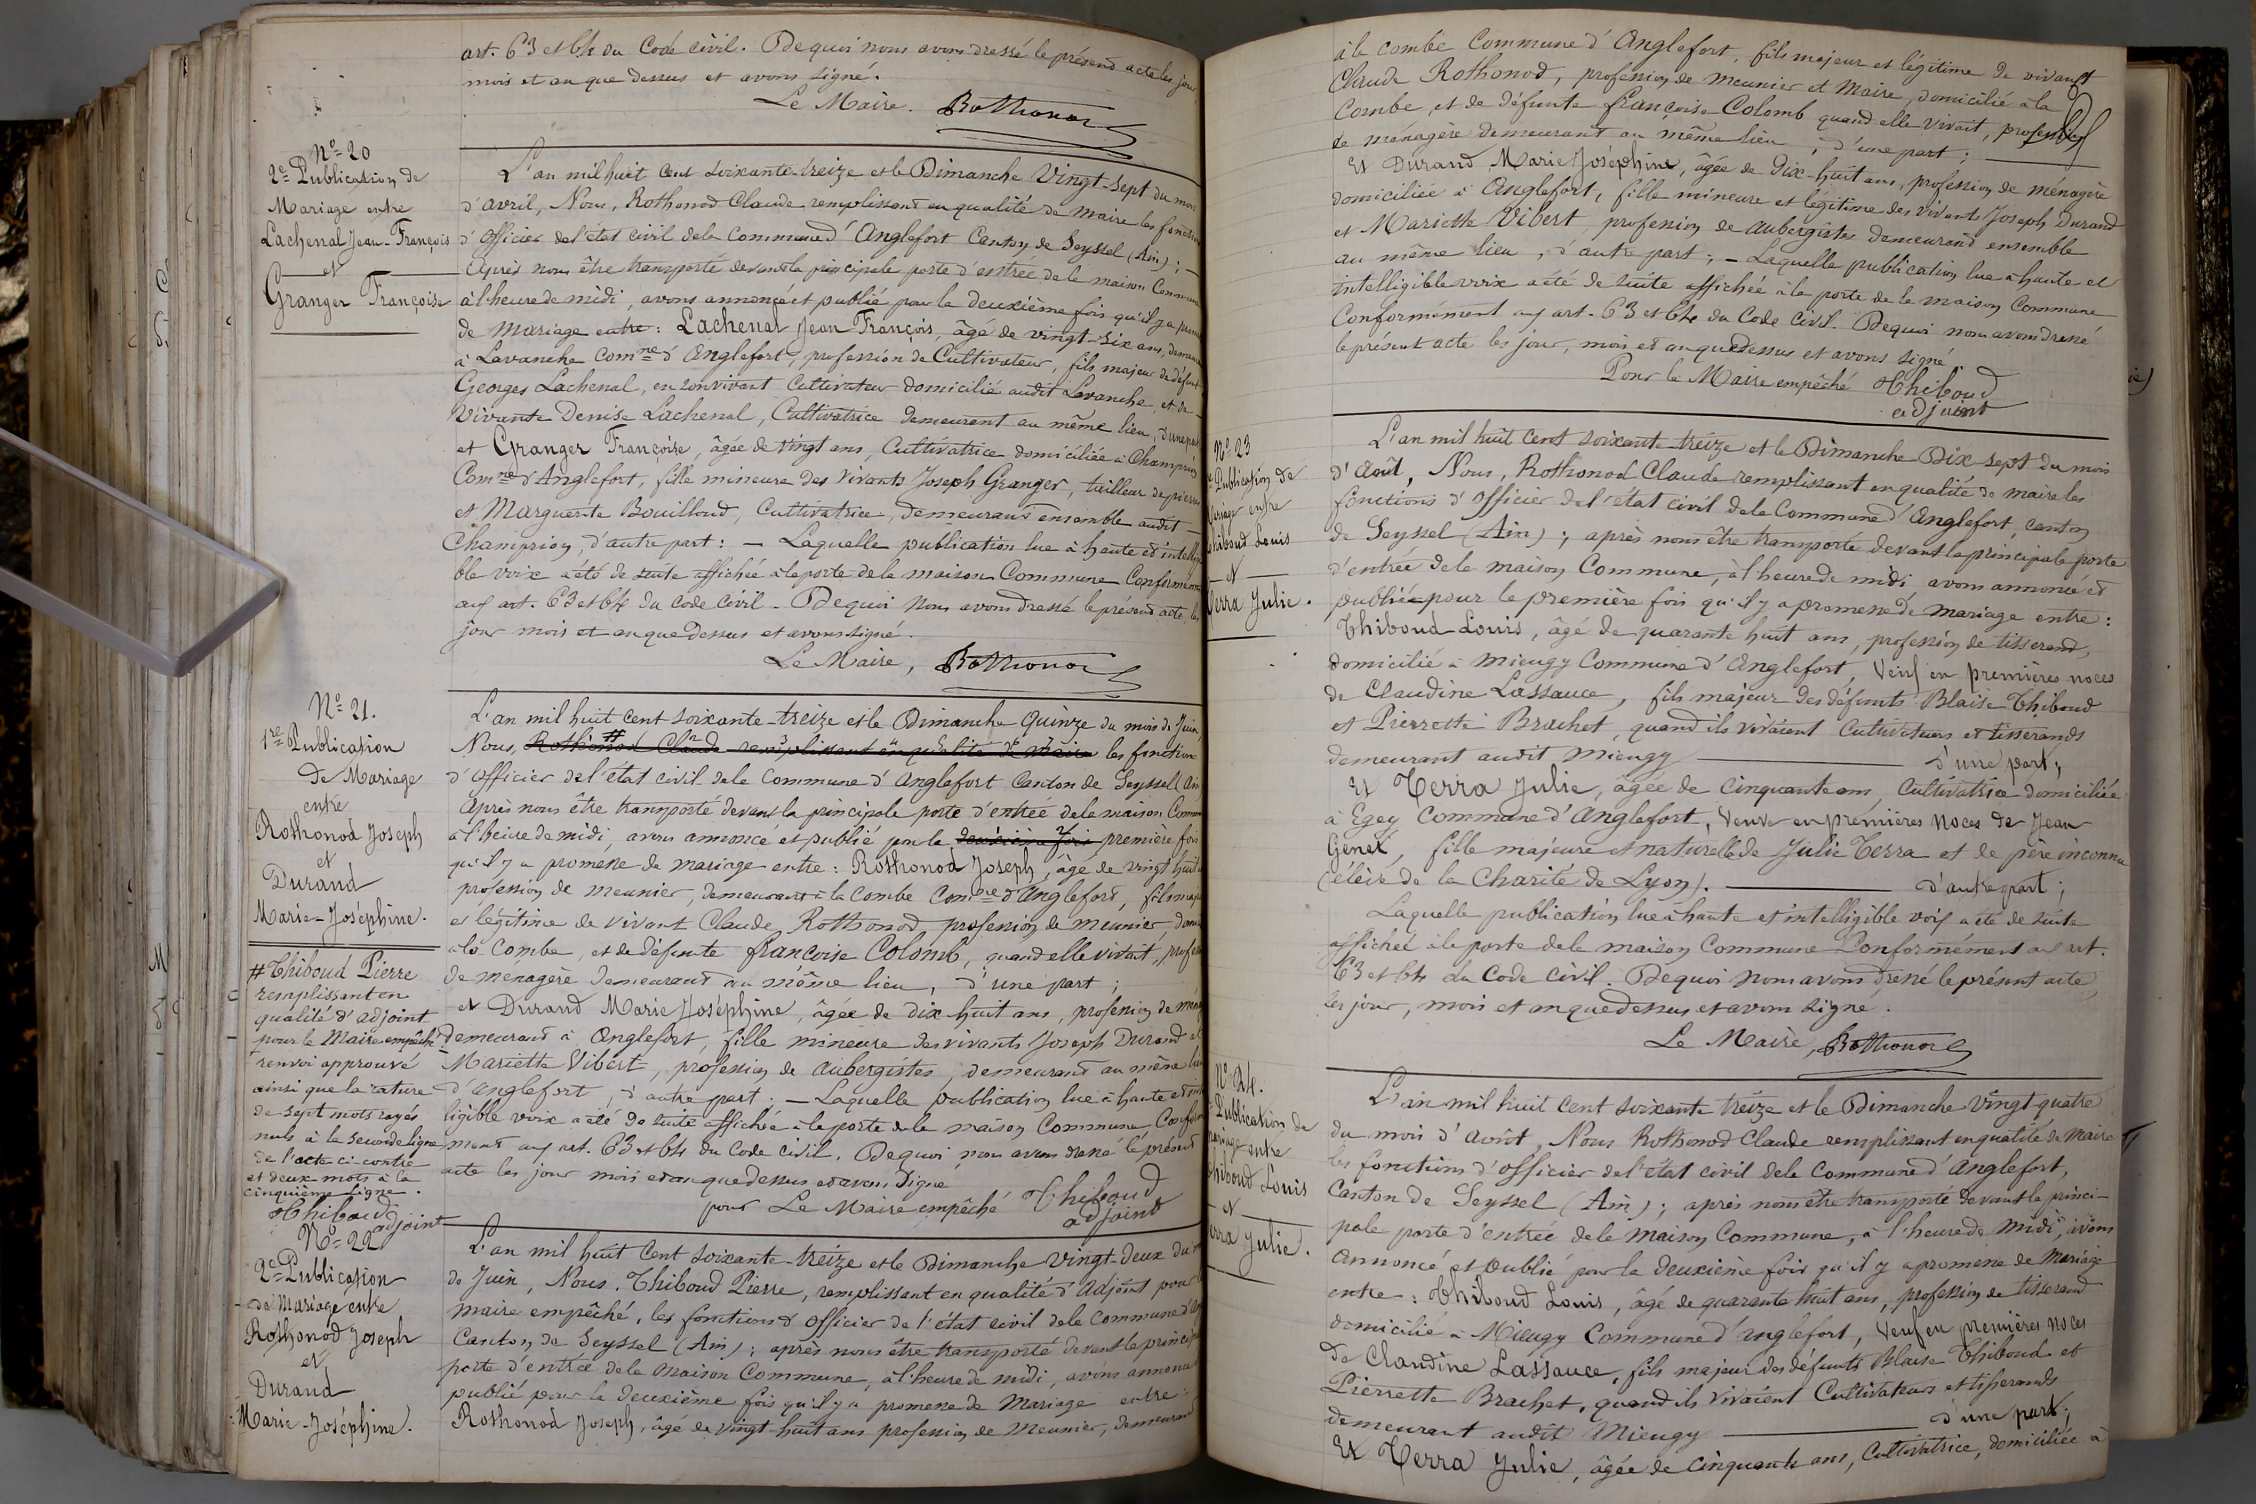 art. 63 et 64 du Code civil. De quoi nous avons dressé le présent acte les jour
mois et an que dessus et avons signé.
Le Maire. Rothonod
N° 20
2e Publication de
Mariage entre
Lachenal Jean-François
et
Granger Françoise
L'an mil huit cent soixante-treize et le Dimanche Vingt-sept du mois
d'avril, Nous, Rothonod Claude remplissant en qualité de maire les fonctions
d'officier de l'état civil de la Commune d'Anglefort Canton de Seyssel (Ain) ; —
après nous être transporté devant la principale porte d'entrée de la maison Commune
à l'heure de midi, avons annoncé et publié pour la deuxième fois qu'il y a promesse
de Mariage entre : Lachenal Jean François, âgé de vingt-six ans, demeurant
à Lavanche Comne d'Anglefort, profession de Cultivateur, fils majeur de défunt
Georges Lachenal, en son vivant Cultivateur domicilié audit Lavanche, et de —
vivante Denise Lachenal, Cultivatrice demeurant au même lieu, d'une part
et Granger Françoise, âgée de vingt ans, Cultivatrice domiciliée à Champrion
Comne d'Anglefort, fille mineure des vivants Joseph Granger, tailleur de pierres
et Marguerite Bouilloud, Cultivatrice, demeurant ensemble audit
Champrion, d'autre part : — Laquelle publication lue à haute et intelligi
ble voix a été de suite affichée à la porte de la maison Commune Conformément
aux art. 63 et 64 du Code Civil — De quoi Nous avons dressé le présent acte, les
jour mois et an que dessus et avons signé.
Le Maire, Rothonod
N° 21.
1re Publication
de Mariage
entre
Rothonod Joseph
et
Durand
Marie-Joséphine.
L'an mil huit cent soixante-treize et le Dimanche Quinze du mois de Juin
Nous, # Rothonod Claude remplissant en qualité de maire les fonctions
d'officier de l'état civil de la Commune d'Anglefort Canton de Seyssel (Ain)
après nous être transporté devant la principale porte d'entrée de la maison Commune
à l'heure de midi, avons annoncé et publié pour la deuxième fois première fois
qu'il y a promesse de mariage entre : Rothonod Joseph, âgé de vingt huit
profession de meunier, demeurant à la Combe Comne d'Anglefort, fils majeur
et légitime de vivant Claude Rothonod, profession de meunier domicilié
à la Combe, et de défunte Françoise Colomb, quand elle vivait, profession
de ménagère demeurant au même lieu, d'une part ;
et Durand Marie Joséphine, âgée de dix huit ans, profession de ménagère
demeurant à Anglefort, fille mineure des vivants Joseph Durand et
Mariette Vibert, profession de aubergistes, demeurant au même lieu
d'Anglefort, d'autre part ; — Laquelle publication lue à haute et intel
ligible voix a été de suite affichée à la porte de la maison Commune, Conformé
ment aux art. 63 et 64 du Code Civil. De quoi nous avons dressé le présent
acte les jour mois et an que dessus et avons signé
pour Le Maire empêché Thiboud
adjoint
# Thiboud Pierre
remplissant en
qualité d'adjoint
pour le Maire empêché
renvoi approuvé
ainsi que la rature
de sept mots rayés
nuls à la seconde ligne
de l'acte ci-contre
et deux mots à la
cinquième ligne.
Thiboud
adjoint
N° 22
2e Publication
de Mariage entre
Rothonod Joseph
et
Durand
Marie-Joséphine.
L'an mil huit Cent soixante-treize et le Dimanche vingt-deux du mois
de Juin, Nous, Thiboud Pierre, remplissant en qualité d'adjoint pour le
maire empêché, les fonctions d'officier de l'état civil de la Commune d'An
Canton de Seyssel (Ain) ; après nous être transporté devant la principale
porte d'entrée de la Maison Commune, à l'heure de midi, avons annoncé et
publié pour la deuxième fois qu'il y a promesse de Mariage entre :
Rothonod Joseph, âgé de vingt-huit ans profession de Meunier, demeurant
à la combe Commune d'Anglefort, fils majeur et légitime de vivant
Claude Rothonod, profession de meunier et Maire, domicilié à la
Combe, et de défunte Françoise Colomb quand elle vivait, profession
de ménagère demeurant au même lieu, d'une part ;
Et Durand Marie Joséphine, âgée de Dix-huit ans, profession de ménagère
domiciliée à Anglefort, fille mineure et légitime des vivants Joseph Durand
et Mariette Vibert, profession de aubergistes demeurant ensemble
au même lieu, d'autre part ; — Laquelle publication lue à haute et
intelligible voix a été de suite affichée à la porte de la maison Commune
Conformément aux art. 63 et 64 du Code Civil. De quoi nous avons dressé
le présent acte les jour, mois et an que dessus et avons signé
Pour le Maire empêché Thiboud
adjoint
N° 23
Publication de
Mariage entre
Thiboud Louis
et
Terra Julie.
L'an mil huit cent soixante-treize et le Dimanche Dix sept du mois
d'Août, Nous, Rothonod Claude remplissant en qualité de maire les
fonctions d'officier de l'état civil de la Commune d'Anglefort canton
de Seyssel (Ain) ; après nous être transporté devant la principale porte
d'entrée de la maison Commune, à l'heure de midi avons annoncé et
publié pour la première fois qu'il y a promesse de mariage entre :
Thiboud Louis, âgé de quarante huit ans, profession de tisserand,
domicilié à Mieugy Commune d'Anglefort, Veuf en premières noces
de Claudine Lassauce, fils majeur des défunts Blaise Thiboud
et Pierrette Brachet, quand ils vivaient Cultivateurs et tisserands
demeurant audit Mieugy — d'une part ;
Et Terra Julie, âgée de Cinquante ans Cultivatrice domiciliée
à Egey Commune d'Anglefort, veuve en premières noces de Jean
Genet, fille majeure et naturelle de Julie Terra et de père inconnu
(élève de la Charité de Lyon). — d'autre part ;
Laquelle publication lue à haute et intelligible voix a été de suite
affichée à la porte de la maison Commune Conformément aux art.
63 et 64 du Code Civil. De quoi nous avons dressé le présent acte,
les jour, mois et an que dessus et avons signé.
Le Maire, Rothonod
N° 24.
Publication de
mariage entre
Thiboud Louis
et
Terra Julie.
L'an mil huit cent soixante treize et le Dimanche vingt-quatre
du mois d'août, Nous Rothonod Claude remplissant en qualité de Maire
les fonctions d'officier de l'état civil de la Commune d'Anglefort,
Canton de Seyssel (Ain) ; après nous être transporté devant la princi-
pale porte d'entrée de la maison Commune, à l'heure de midi, avons
annoncé et publié pour la deuxième fois qu'il y a promesse de Mariage
entre : Thiboud Louis, âgé de quarante huit ans, profession de tisserand
domicilié à Mieugy Commune d'Anglefort, veuf en premières noces
de Claudine Lassauce, fils majeur des défunts Blaise Thiboud et
Pierrette Brachet, quand ils vivaient Cultivateurs et tisserands
demeurant audit Mieugy — d'une part ;
Et Terra Julie, âgée de cinquante ans, Cultivatrice, domiciliée à